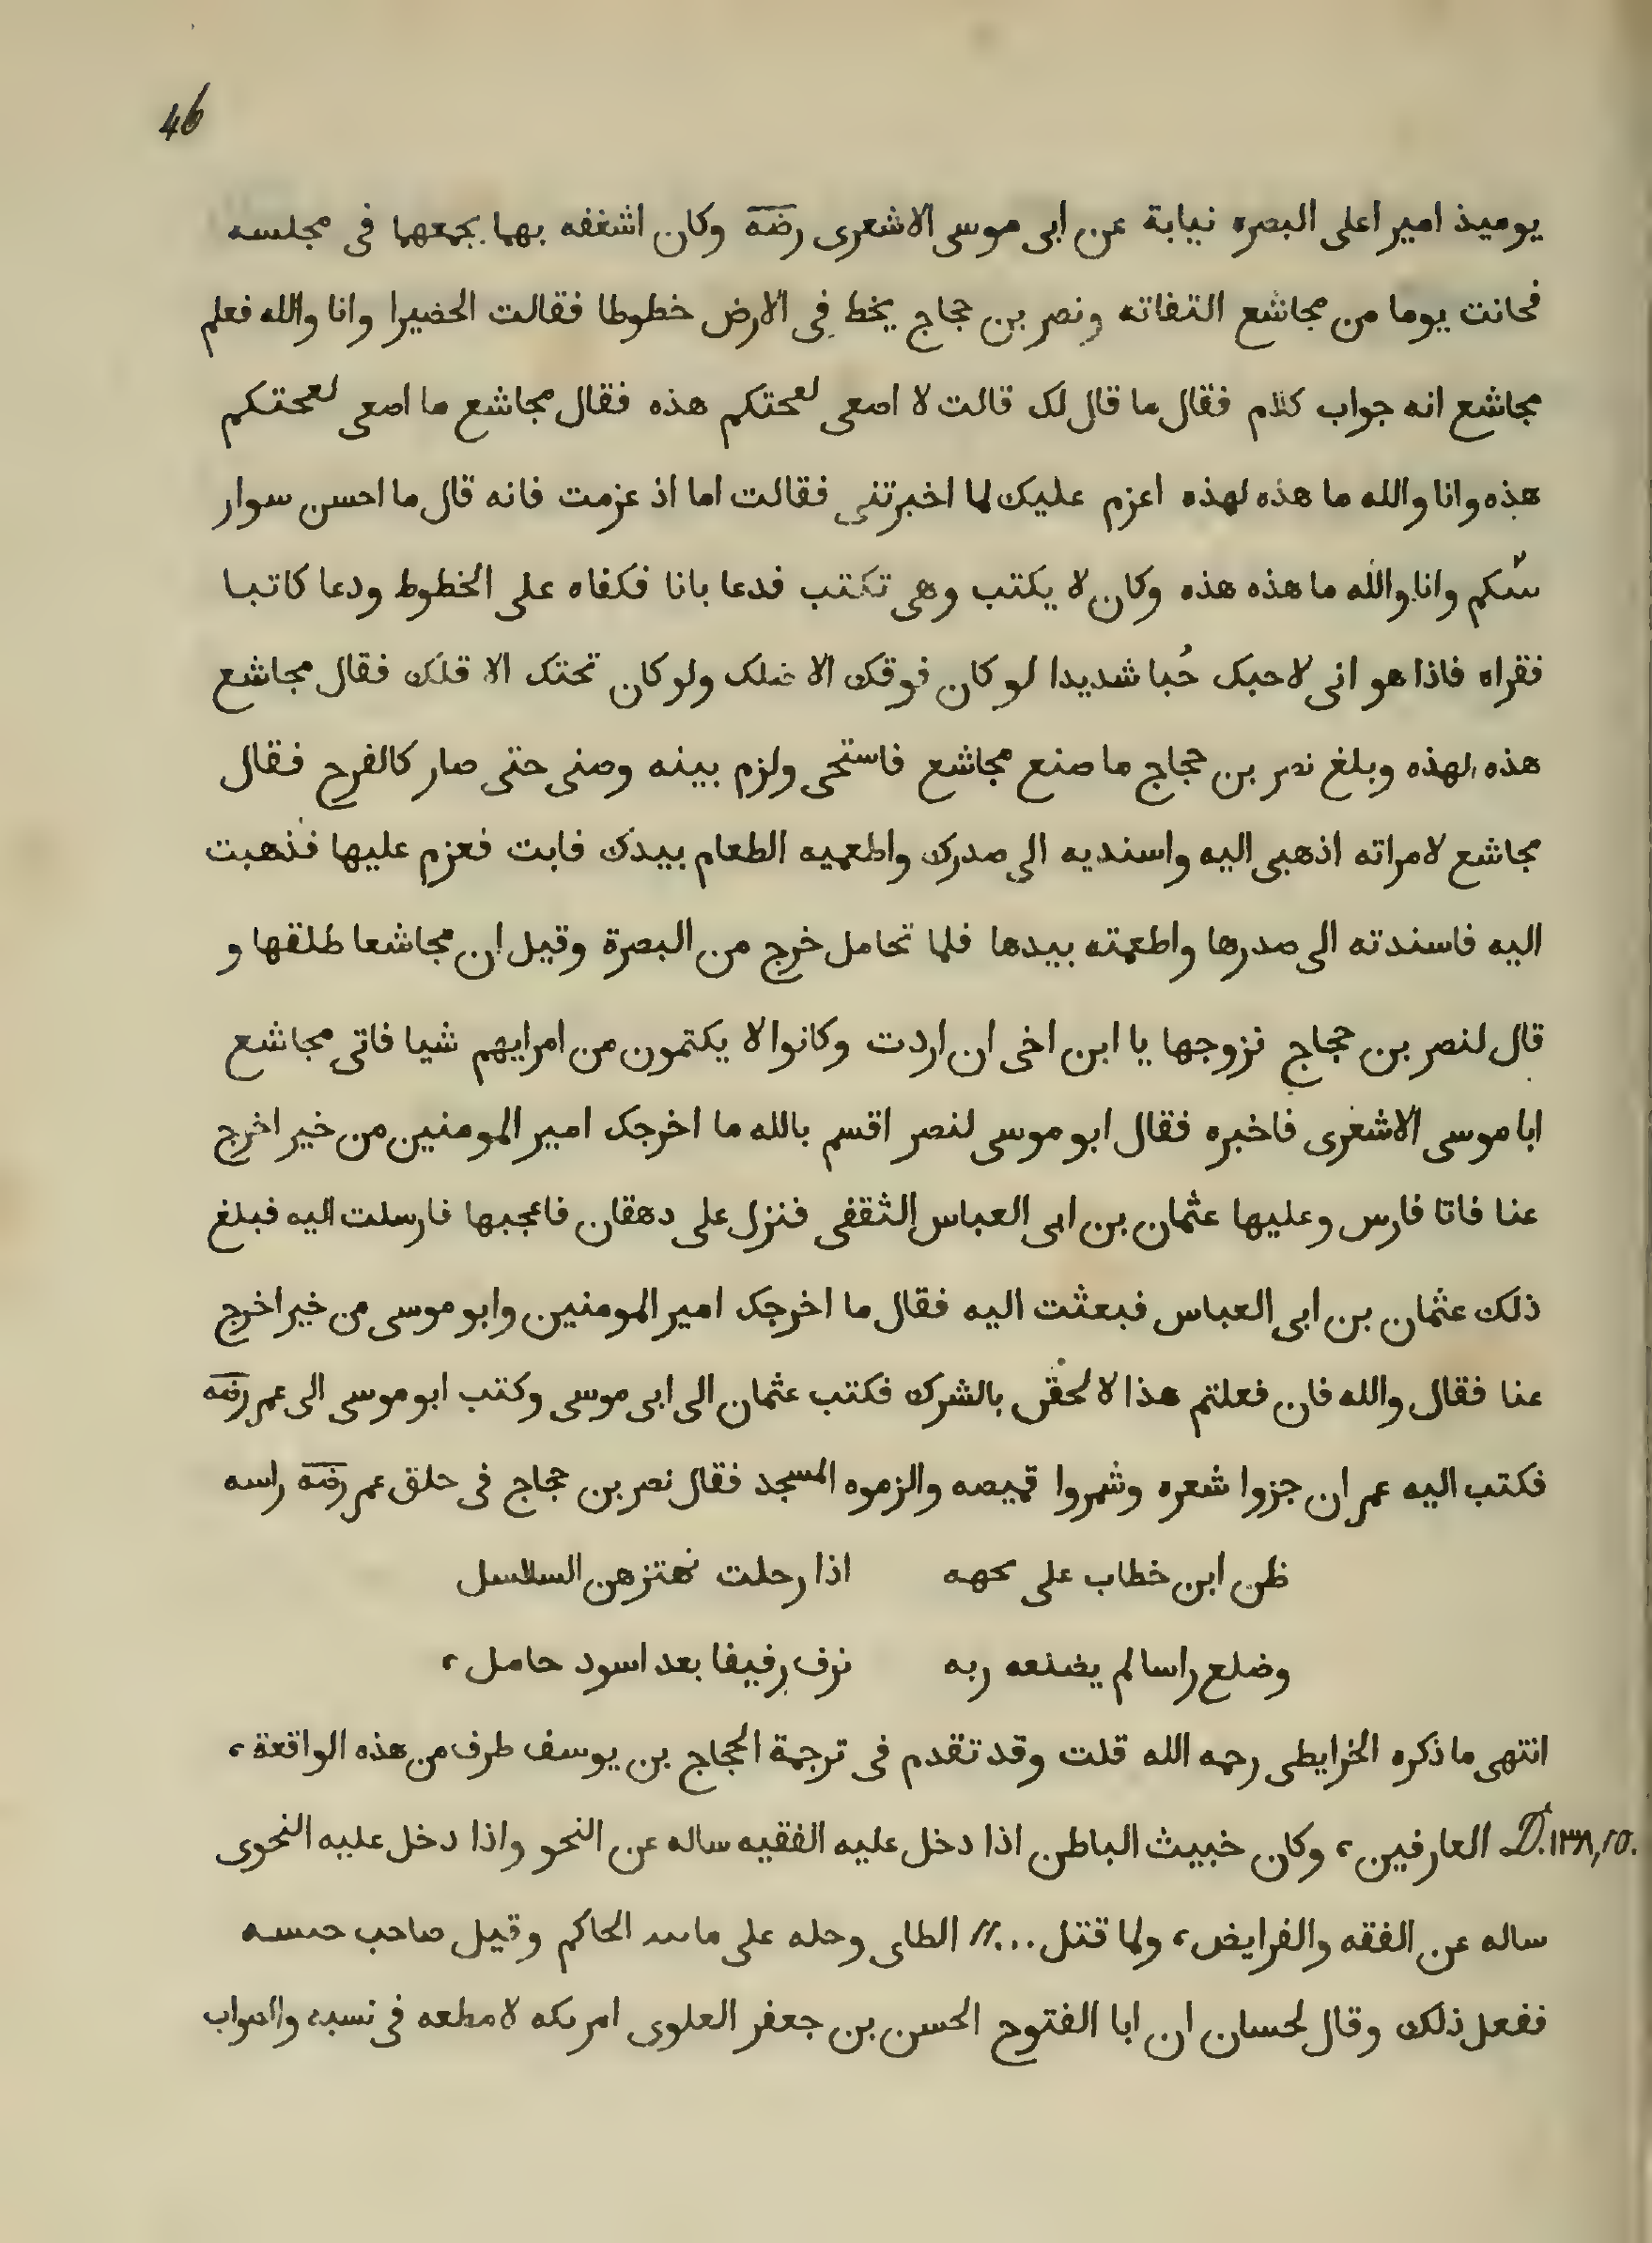 46
يوميذ اميرا على البصره نيابة عن ابى موسى الاشعرى رضه وكان اشغفه بهما يجمعهما فى مجلسه
فحانت يوما من مجاشع التفاته ونصر بن حجاج يخط فى الارض خطوطا فقالت الخضيرا وانا والله فعلم
مجاشع انه جواب كلام فقال ما قال لك قالت لا اصعى لعحتكم هذه فقال مجاشع ما اصعى لعحتكم
هذه وانا والله ما هذه لهذه اعزم عليك لما اخبرتنى فقالت اما اذ عزمت فانه قال ما احسن سوار
وانا والله ما هذه هذه وكان لا يكتب وهى تكتب فدعا بانا فكفاه على الخطوط ودعا كاتبا
فقراه فاذا هو انى لاحبك حُبا شديدا لو كان فوقك الاضلك ولو كان تحتك الا قلك فقال مجاشع
هذه لهذه وبلغ نصر بن حجاج ما صنع مجاشع فاستحى ولزم بينه وصنى حتى صار كالفرح فقال
مجاشع لامراته اذهبى اليه واسنديه الى صدرك واطعميه الطعام بيدك فابت فعزم عليها فذهبت
اليه فاسندته الى صدرها واطعمته بيدها فلما تحامل خرج من البصرة وقيل ان مجاشعا طلقها و
قال لنصر بن حجاج نزوجها يا ابن اخى ان اردت وكانوا لا يكتمون من امرايهم شيا فاتى مجاشع
ابا موسى الاشغرى فاخبره فقال ابو موسى لنصر اقسم بالله ما اخرجك امير المومنين من خير اخرج
عنا فاتا فارس وعليها عثمان بن ابى العباس الثقفى فنزل على دهقان فاعجبها فارسلت اليه فبلغ
ذلك عثمان بن ابى العباس فبعثت اليه فقال ما اخرجك امير المومنين وابو موسى من خير اخرج
عنا فقال والله فان فعلتم هذا لالحقن بالشرك فكتب عثمان الى ابى موسى وكتب ابو موسى الى عمر رضه
فكتب اليه عمر ان جزوا شعره وشمروا قميصه والزموه المسجد فقال نصر بن حجاج فى حلق عمر رضه راسه
ظن ابن خطاب على اذا رحلت تهتز هن السلاسل
وضلع راسا لم يضنعه ربه نرف رفيفا بعد اسود حامل،
انتهى ما ذكره الخرايطى رحمه الله قلت وقد تقدم فى ترجمة الحجاج بن يوسف طرف من هذه الواقعة،
D.١٣٨,٢٥. العارفين، وكان خبيث الباطن اذا دخل عليه الفقيه ساله عن النحو واذا دخل عليه النحوى
ساله عن الفقه والفرايض، ولما قتل...// الطاى وحله على الحاكم وقيل صاحب حسسه
ففعل ذلك وقال لحسان ان ابا الفتوح الحسن بن جعفر العلوى امر مكه لا مطعه فى نسبه والصواب